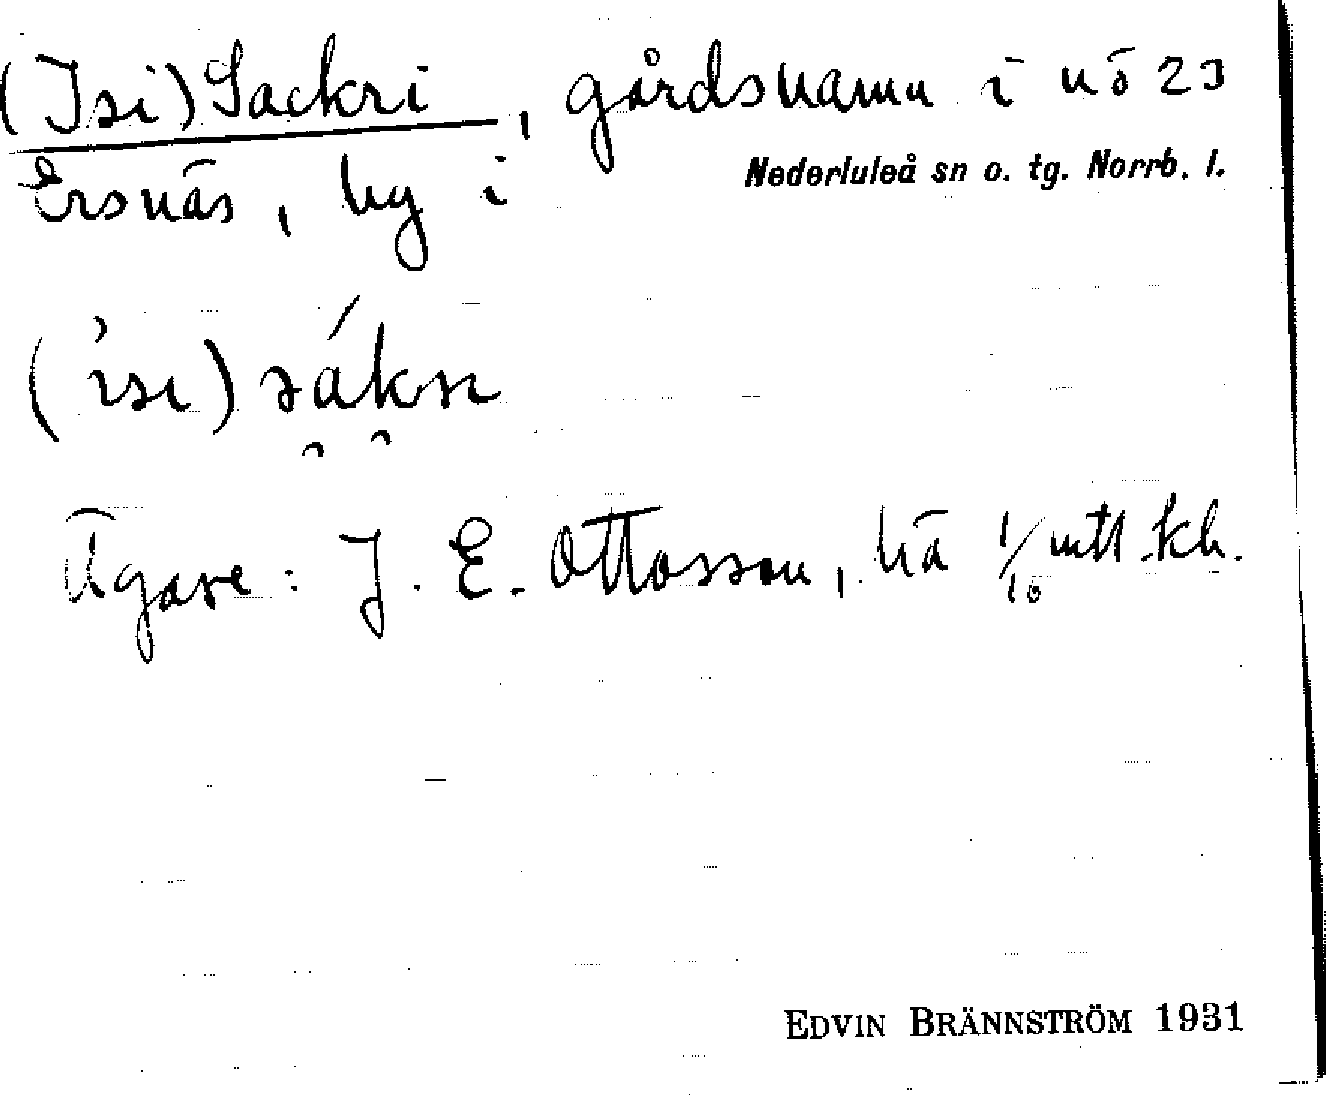 (Isi)Sackri, gårdsnamn i nō 23
Ersnäs, by i Nederluleå sn o. tg. Norrb. l.
(ìsi)sákri
Ägare: J. E. Ottosson, brä 1/10 mtl kh.
EDVIN BRÄNNSTRÖM 1931